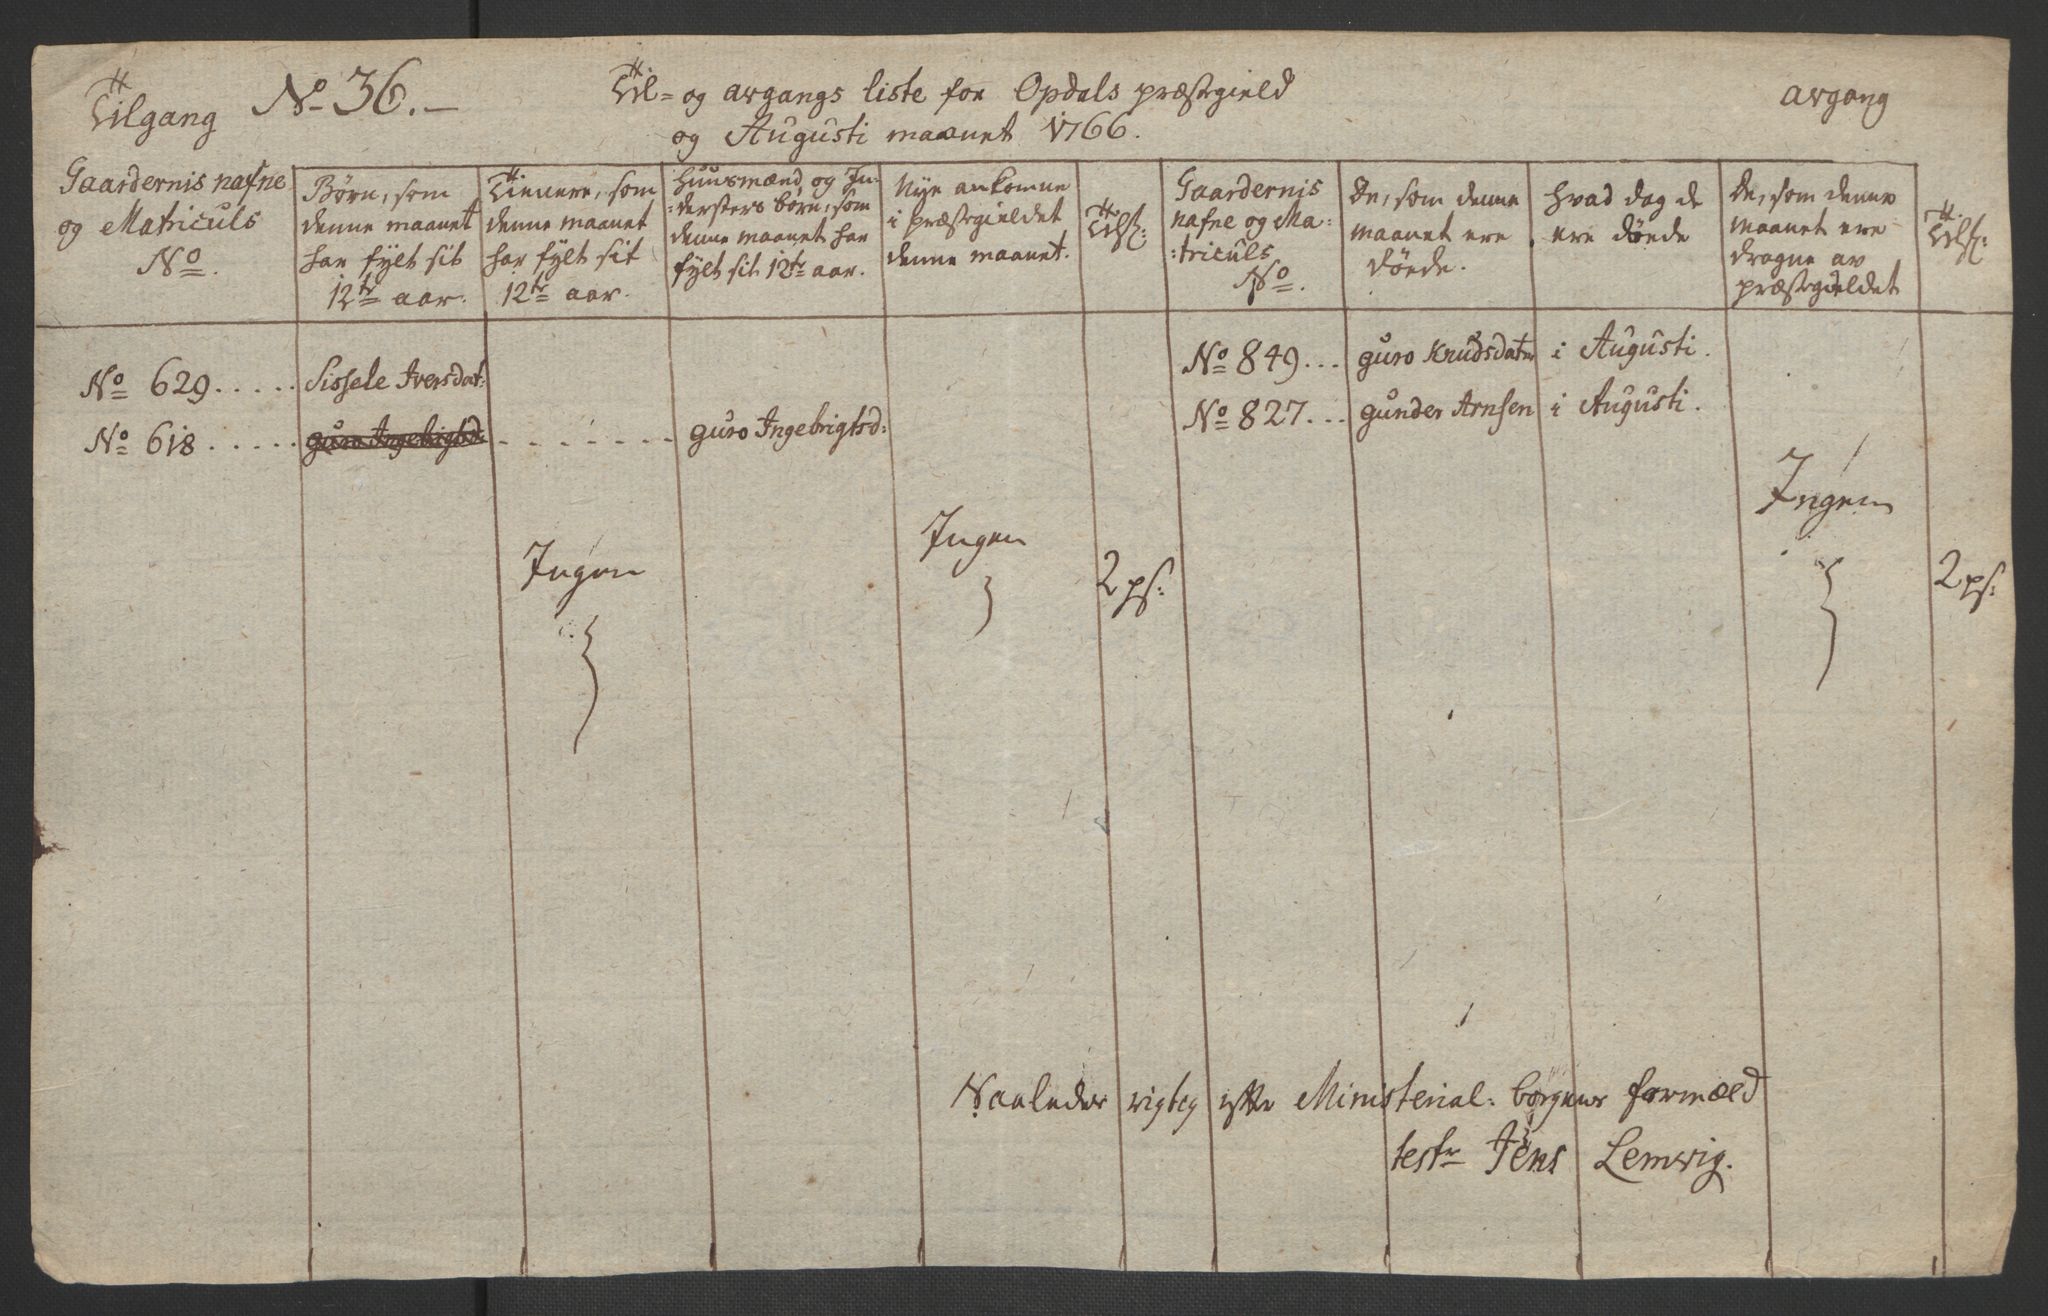 Tilgang
No 36.
Til- og avgangs liste for Opdals præstegield
og Augusti maanet 1766.
avgang
Gaardernis nafne
og Matriculs
No.
Børn, som
denne maanet
har fylt sit
12te aar.
Tienere, som
denne maanet
har fylt sit
12te aar.
Huusmænd og In-
:dersters børn, som
denne maanet har
fylt sit 12te aar.
Nye ankomne
i præstegieldet
denne maanet.
Gaardernis
nafne og Ma:
:triculs
No.
De, som denne
maanet ere
døede.
hvad dag de
ere døede
De, som denne
maanet ere
dragne av
præstegieldet
No 629 ..... Sissele Iversdat:
No 618 ..... guro Ingebrigtsd: ....... guro Ingebrigtsd:
No 849 ... guro Knudsdatter i Augusti.
No 827 ... gunder Arnsen i Augusti.
Ingen
Ingen
2 ps:
Ingen
2 ps:
Saaledes rigtig efter Ministerial: bogens formæld
test Jens Lemvig.